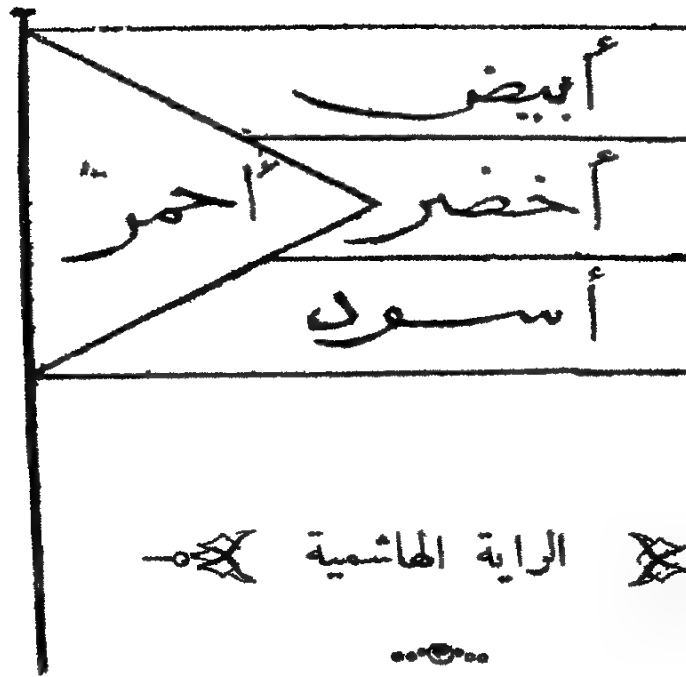 أبيض
أخضر
أحمر
أسود
الراية الهاشمية